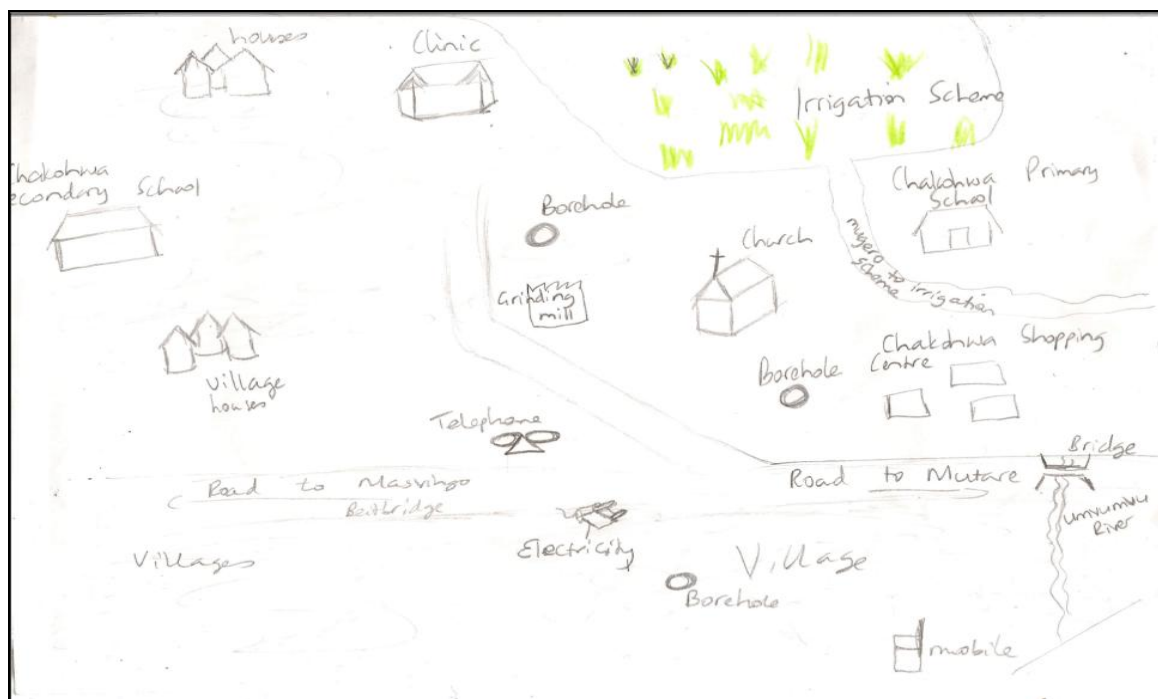 houses
Clinic
Irrigation Scheme
Chakohwa
Secondary School
Borehole
Chakohwa Primary
School
Church
mugero to irrigation
scheme
Grinding
mill
Village
houses
Chakohwa Shopping
Centre
Borehole
Telephone
Bridge
Road to Masvingo
Beitbridge
Road to Mutare
Umvumvu
River
Electricity
Villages
Village
Borehole
mobile